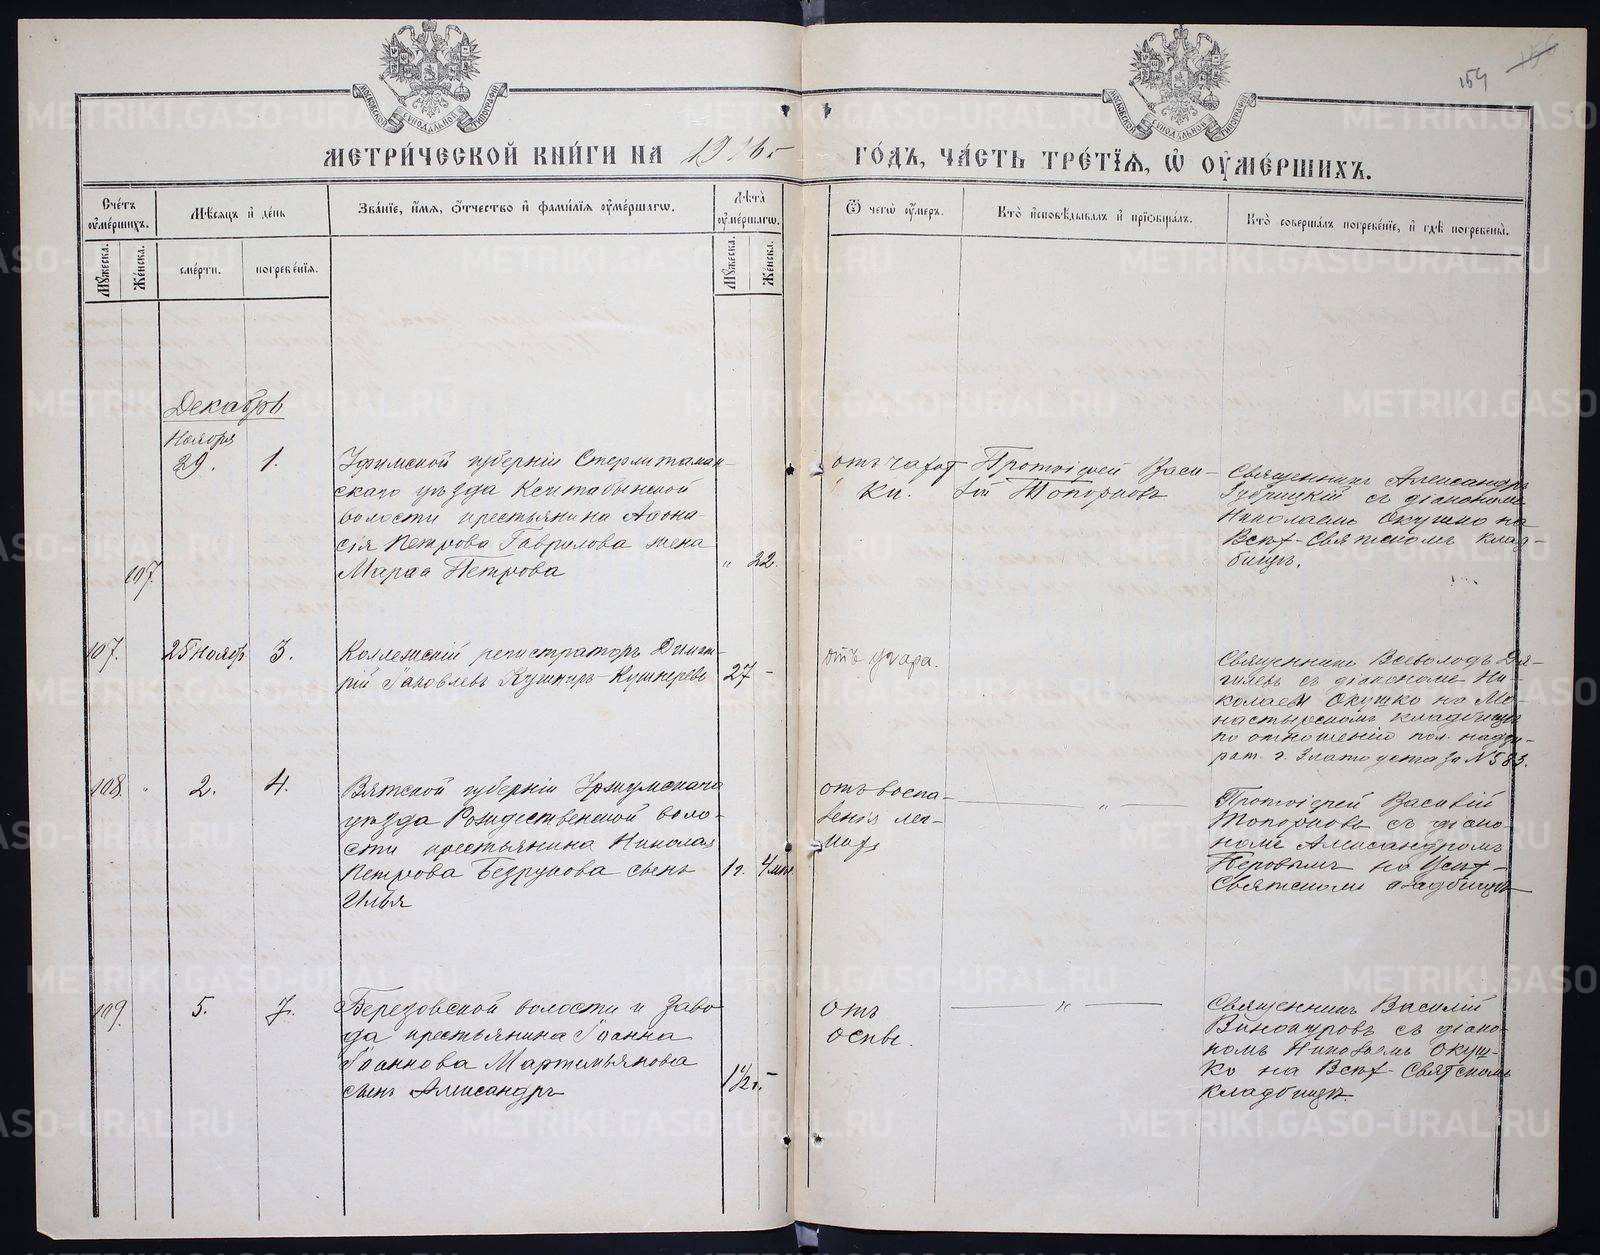 154
МЕТРИ́ЧЕСКОЙ КНИ́ГИ НА 1916 г ГО́ДЪ, ЧА́СТЬ ТРЕ́ТЇѦ, Ѡ ОУМЕ́РШИХЪ.
МОСКОВСКОЙ СѴНОДАЛЬНОЙ ТИПОГРАФІИ
МОСКОВСКОЙ СѴНОДАЛЬНОЙ ТИПОГРАФІИ
Сче́тъ оумершихъ.
Мꙋжеска. Же́нска.
Мѣсяцъ и де́нь
сме́рти. погребе́нїя.
Зва́нїе, и́мя, о́тчество и фами́лїя оуме́ршагѡ.
Лѣта̀ оуме́ршагѡ.
Мꙋжеска. Же́нска.
Ѿ чегѡ̀ оу́меръ.
Кто̀ и҆сповѣ́дывалъ и҆ прїѡбща́лъ.
Кто̀ соверша́лъ погребе́нїе, и҆ гдѣ̀ погребены̀.
Декабрь
Ноября
29. 1.
107.
Уфимской губерніи Стерлитаман-
скаго уѣзда
волости крестьянина Аѳона-
сія Петрова Гаврилова жена
Марѳа Петрова
" 22.
отъ чахот
ки.
Протоіерей Васи-
лій Топорковъ
Священникъ Александръ
съ діакономъ
Николаемъ Окушко на
Всѣх-Святскомъ клад-
бищѣ.
107. 25 Ноябр 3.
Коллежскій регистраторъ Дмит-
рій Іаковлевъ Кушнир-Кушнерево
27 -
отъ угара.
Священникъ Всеволодъ Дя-
гилевъ съ діакономъ Ни-
колаем Окушко на Мо-
настырскомъ кладбищѣ
по отношенію пол. надзи-
рат. г. Златоуста за № 583.
108. " 2. 4.
Вятской губерніи Уржумскаго
уѣзда Рождественской воло-
сти крестьянина Николая
Петрова Безрукова сынъ
Илья
1 г. 4 мѣс.
отъ воспа-
ленія лег-
ких
"
Протоіерей Василій
Топорковъ съ діако-
номъ Александромъ
Перовымъ на Всѣх-
Святскомъ кладбищѣ
109. 5. 7.
Березовской волости и заво-
да крестьянина Іоанна
Іоаннова Мартемьянова
сынъ Александръ
1 1/2 г. -
отъ
оспы.
"
Священникъ Василій
Винокуровъ съ діако-
номъ Николаемъ Окуш-
ко на Всѣх-Святскомъ
кладбищѣ.
METRIKI.GASO-URAL.RU